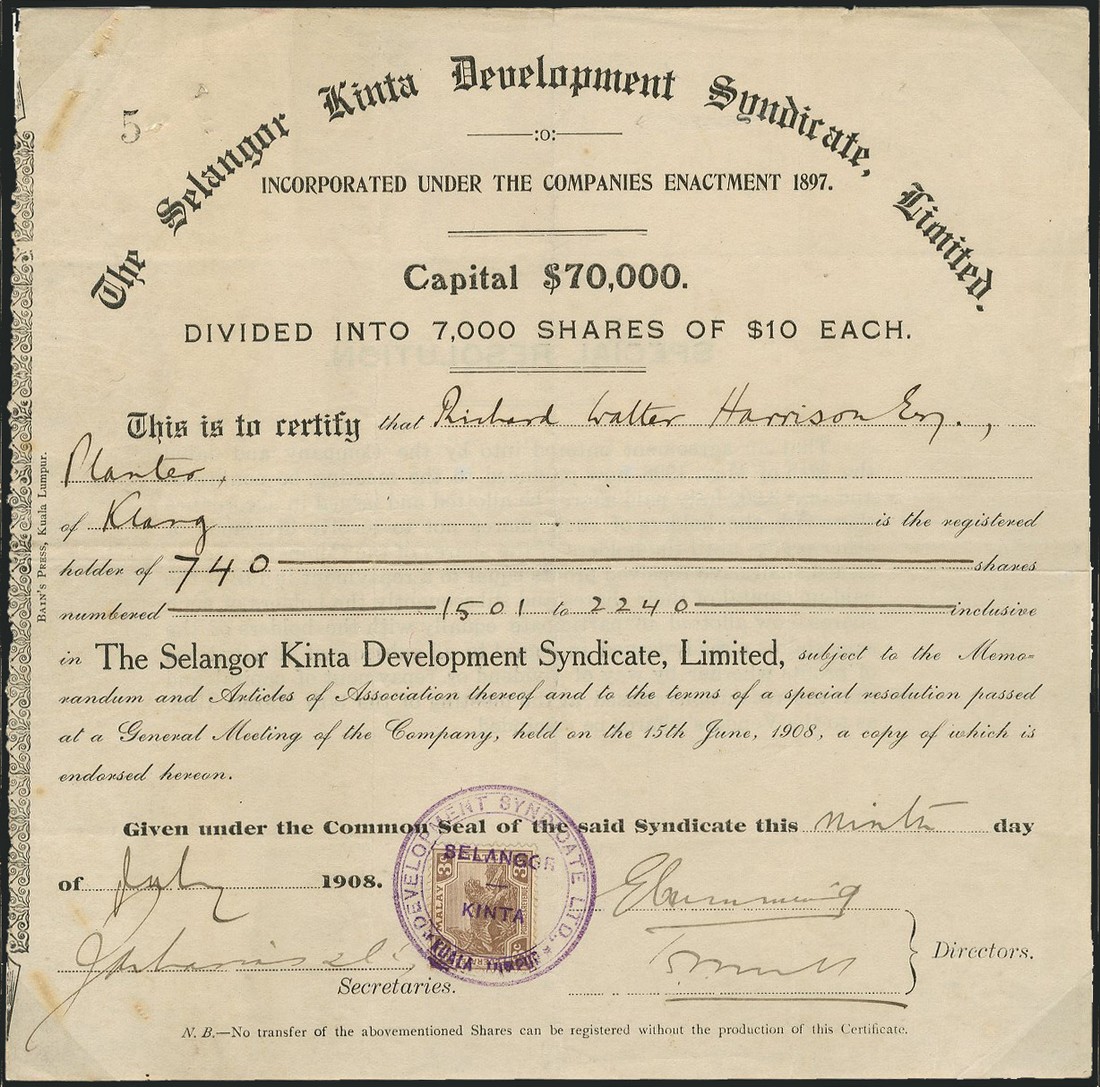 5
The Selangor Kinta Development Syndicate, Limited.
:o:
INCORPORATED UNDER THE COMPANIES ENACTMENT 1897.
Capital $70,000.
DIVIDED INTO 7,000 SHARES OF $10 EACH.
This is to certify that Richard Walter Harrison Esq.,
Planter,
of Klang is the registered
holder of 740 shares
numbered 1501 to 2240 inclusive
in The Selangor Kinta Development Syndicate, Limited, subject to the Memo-
randum and Articles of Association thereof and to the terms of a special resolution passed
at a General Meeting of the Company, held on the 15th June, 1908, a copy of which is
endorsed hereon.
Given under the Common Seal of the said Syndicate this ninth day
of July 1908.
DEVELOPMENT SYNDICATE LTD.,
SELANGOR
KINTA
KUALA LUMPUR
MALAY
3
3
Directors.
Secretaries.
N.B.—No transfer of the abovementioned Shares can be registered without the production of this Certificate.
BAIN'S PRESS, Kuala Lumpur.